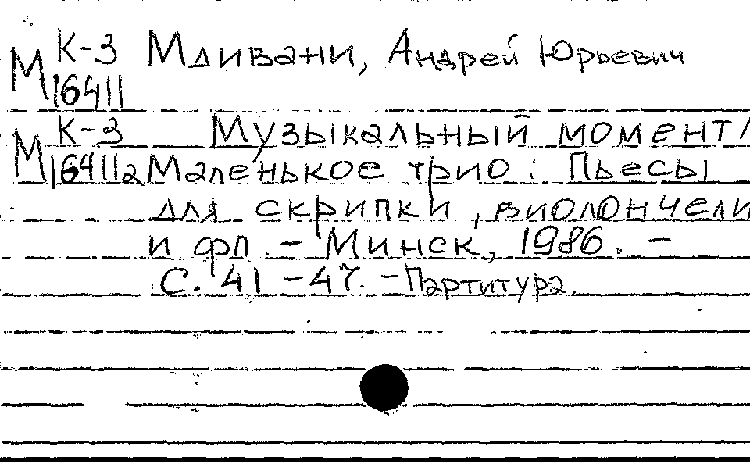 К-3 Мдивани, Андрей Юрьевич
М 16411
К-3 Музыкальный момент/
М 16411а Маленькое трио: Пьесы
для скрипки, виолончели
и фп. – Минск, 1986. –
С. 41-47. – Партитура.